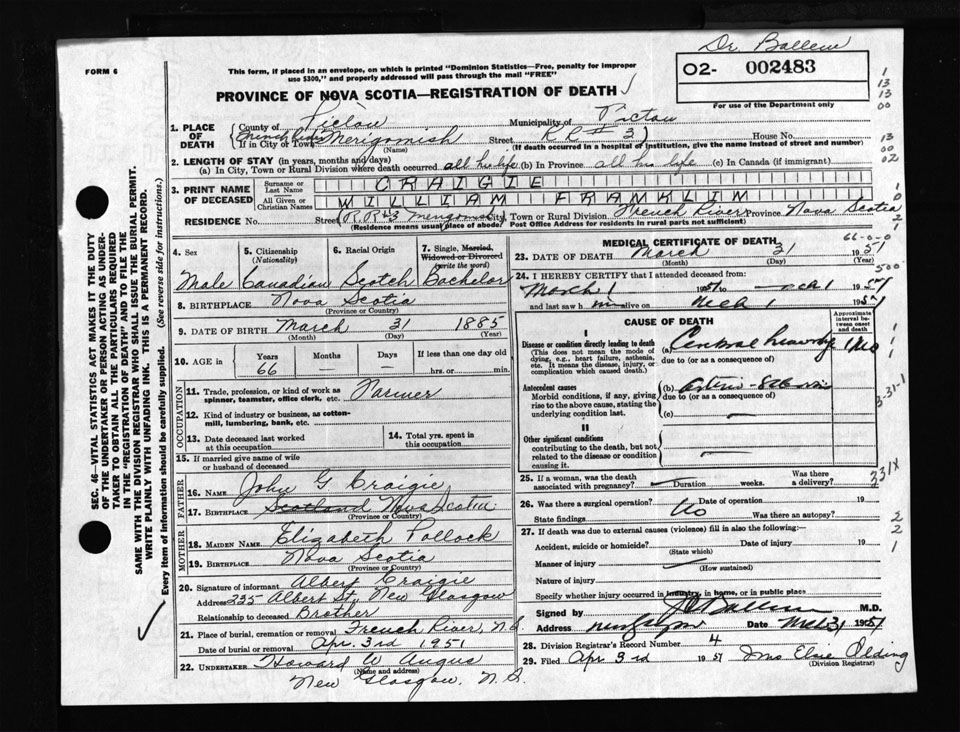 Dr. Ballem
FORM 6
This form, if placed in an envelope, on which is printed "Dominion Statistics—Free, penalty for improper
use $300," and properly addressed will pass through the mail "FREE"
02- 002483
For use of the Department only
PROVINCE OF NOVA SCOTIA—REGISTRATION OF DEATH
1. PLACE OF DEATH
County of Pictou Municipality of Pictou
If in City or Town French River Merigomish Street R.R # 3 House No.
(Name) (If death occurred in a hospital of institution, give the name instead of street and number)
2. LENGTH OF STAY (in years, months and days)
(a) In City, Town or Rural Division where death occurred all his life (b) In Province all his life (c) In Canada (if immigrant)
3. PRINT NAME OF DECEASED
Surname or Last Name CRAIGIE
All Given or Christian Names WILLIAM FRANKLIN
RESIDENCE No. Street R.R #3 City, Town or Rural Division French River Province Nova Scotia
(Residence means usual place of abode. Post Office Address for residents in rural parts not sufficient)
4. Sex 5. Citizenship (Nationality) 6. Racial Origin 7. Single, Married, Widowed or Divorced (write the word)
Male Canadian Scotch Bachelor
8. BIRTHPLACE Nova Scotia
(Province or Country)
9. DATE OF BIRTH March 31 1885
(Month) (Day) (Year)
10. AGE in Years Months Days If less than one day old
66 — — hrs. or min.
OCCUPATION
11. Trade, profession, or kind of work as
spinner, teamster, office clerk, etc. Farmer
12. Kind of industry or business, as cotton-
mill, lumbering, bank, etc.
13. Date deceased last worked
at this occupation
14. Total yrs. spent in
this occupation
15. If married give name of wife
or husband of deceased
FATHER
16. Name John G Craigie
17. Birthplace Scotland Nova Scotia
(Province or Country)
MOTHER
18. MAIDEN NAME Elizabeth Pollock
19. BIRTHPLACE Nova Scotia
(Province or Country)
20. Signature of informant Albert Craigie
Address 225 Albert St, New Glasgow
Relationship to deceased Brother
21. Place of burial, cremation or removal French River, N.S.
Date of burial or removal Apr. 3rd 1951
22. UNDERTAKER Howard W Angus
(Name and address)
New Glasgow, N.S.
MEDICAL CERTIFICATE OF DEATH
66-0-0
23. DATE OF DEATH March 31 1951
(Month) (Day) (Year)
24. I HEREBY CERTIFY that I attended deceased from:
500
March 1 1951 to
and last saw h im alive on 1951
CAUSE OF DEATH
Approximate interval between onset and death
I
Disease or condition directly leading to death
(This does not mean the mode of dying, e.g., heart failure, asthenia, etc. It means the disease, injury, or complication which caused death.)
(a)
due to (or as a consequence of)
Antecedent causes
Morbid conditions, if any, giving rise to the above cause, stating the underlying condition last.
(b)
due to (or as a consequence of)
(c)
II
Other significant conditions
contributing to the death, but not related to the disease or condition causing it.
3-31-1
331X
25. If a woman, was the death
associated with pregnancy? Duration weeks. Was there a delivery?
26. Was there a surgical operation? No Date of operation 19
State findings Was there an autopsy?
27. If death was due to external causes (violence) fill in also the following:—
Accident, suicide or homicide? Date of injury 19
(State which)
Manner of injury
(How sustained)
Nature of injury
Specify whether injury occurred in industry, in home, or in public place
Signed by Ballem M.D.
Address New Glasgow Date Mch 31 1951
28. Division Registrar's Record Number 4
29. Filed Apr 3rd 1951 Mrs Elsie Olding
(Division Registrar)
SEC. 46—VITAL STATISTICS ACT MAKES IT THE DUTY
OF THE UNDERTAKER OR PERSON ACTING AS UNDER-
TAKER TO OBTAIN ALL THE PARTICULARS REQUIRED
IN THE "REGISTRATION OF DEATH" AND TO FILE THE
SAME WITH THE DIVISION REGISTRAR WHO SHALL ISSUE THE BURIAL PERMIT.
WRITE PLAINLY WITH UNFADING INK. THIS IS A PERMANENT RECORD.
Every item of information should be carefully supplied. (See reverse side for instructions.)
1
13
13
00
13
00
02